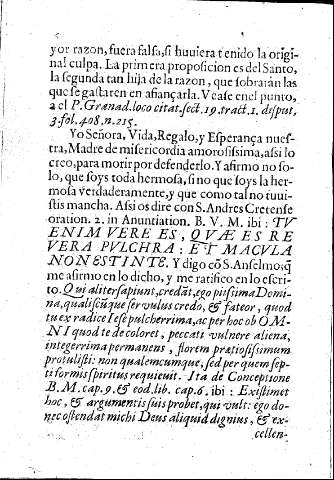 yor razon, fuera falsa, si huuiera tenido la origi-
nal culpa. La primera proposicion es del Santo,
la segunda tan hija de la razon, que sobraràn las
que se gastaren en afiançarla. Vease en el punto,
a el P. Granad. loco citat. sect. 19. tract. 1. disput,
3. fol. 408. n. 215.
Yo Señora, Vida, Regalo, y Esperança nues-
tra, Madre de misericordia amorosissima, assi lo
creo, para morir por defenderlo. Y afirmo no so-
lo, que soys toda hermosa, si no que soys la her-
mosa verdaderamente, y que como tal no tuui-
istis mancha. Assi os dire con S. Andres Cretense
oration. 2. in Anuntiation. B. V. M. ibi: TV
ENIM VERE ES, QVÆ ES RE
VERA PVLCHRA: ET MACVLA
NON EST IN TE. Y digo cõ S. Anselmo, q̃
me afirmo en lo dicho, y me ratifico en lo escri-
to. Qui aliter sapiunt, credãt, ego piissima Domi-
na, qualiscũque servulus credo, & fateor, quod
tu ex radice Iesè pulcherrima, ac per hoc ob OM-
NI quod te decoloret, peccati vulnere aliena,
integerrima permanens, florem prætiosissimum
protulisti: non qualemcumque, sed per quem sep-
tiformis spiritus requieuit. Ita de Conceptione
B. M. cap. 9. & eod. lib. cap. 6. ibi: Existimet
hoc, & argumentis suis probet, qui vult: ego do-
nec ostendat michi Deus aliquid dignius, & ex-
cellen-